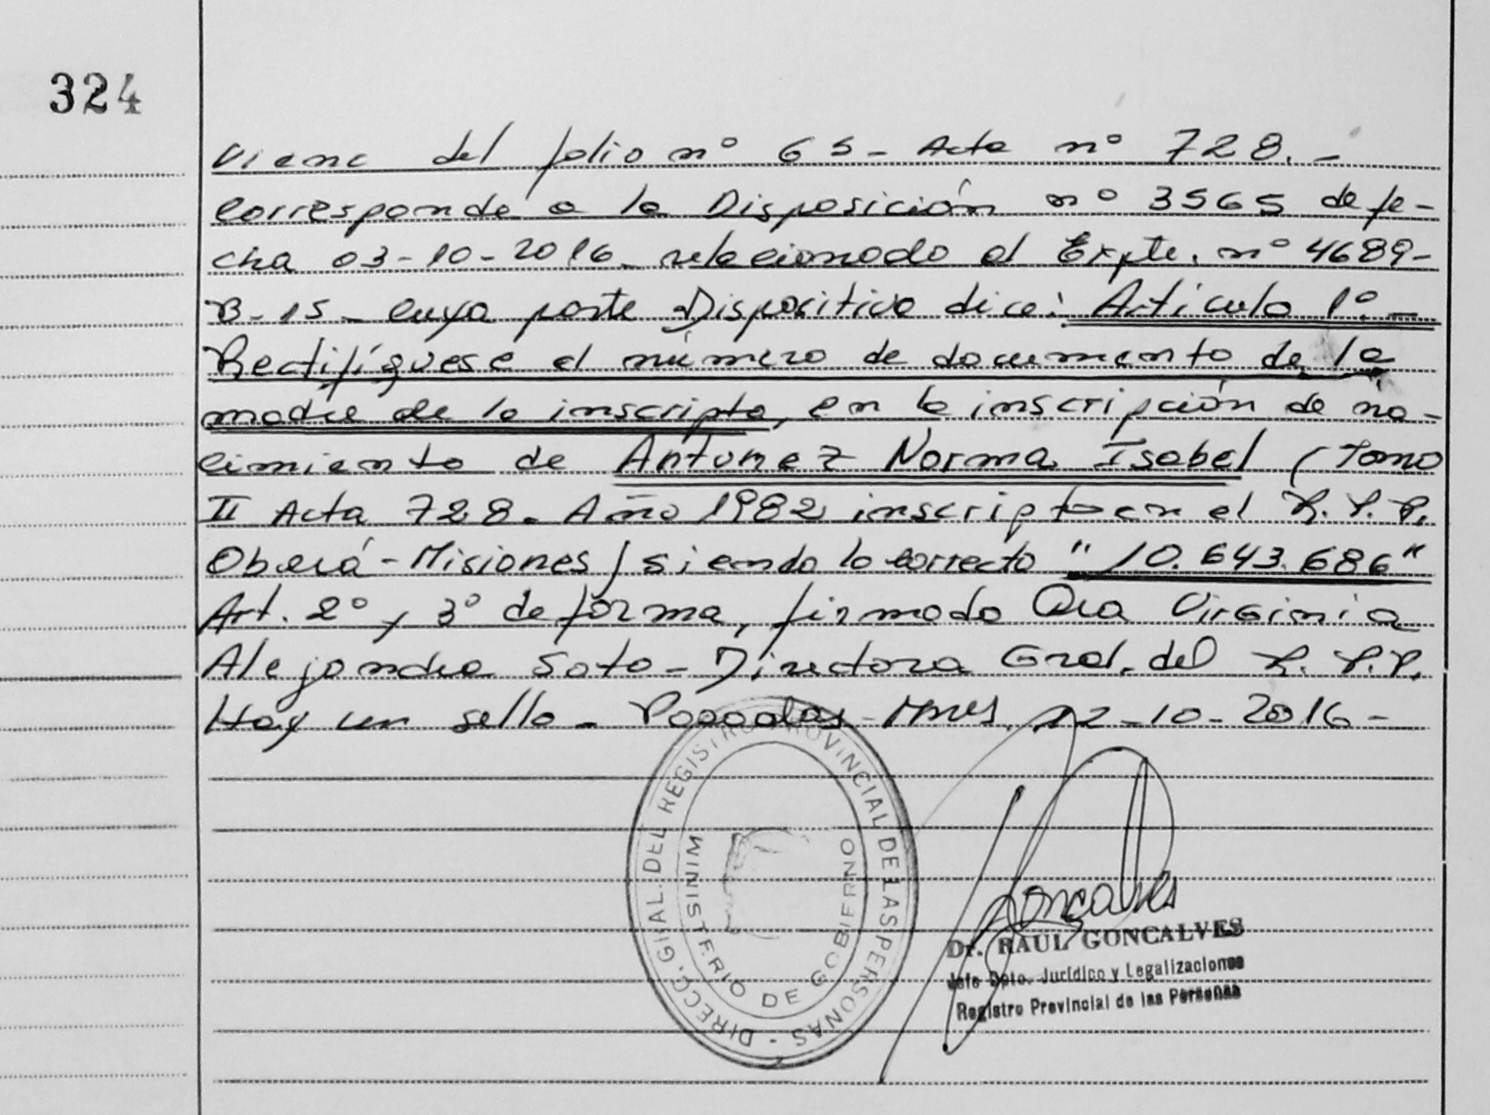 324
Viene del folio nº 65- Acta nº 728.-
Corresponde a la Disposición nº 3565 de fe-
cha 03-10-2016 relacionado al Expte. nº 4689-
B-15- cuya parte Dispositiva dice: Artículo 1º.-
Rectifíquese el número de documento de la
madre de la inscripta, en la inscripción de na-
cimiento de Antunez Norma Isabel (Tomo
II Acta 728. Año 1982 inscripto en el R.P.P.
Oberá-Misiones) siendo lo correcto "10.643.686"
Art. 2º y 3º de forma, firmado Dra Virginia
Alejandra Soto- Directora Gral. del R.P.P.
Hay un sello- Posadas-Mnes 12-10-2016-
DIRECC. GRAL. DEL REGISTRO PROVINCIAL DE LAS PERSONAS -
MINISTERIO DE GOBIERNO
Goncalves
Dr. RAUL GONCALVES
Jefe Dpto. Jurídico y Legalizaciones
Registro Provincial de las Personas